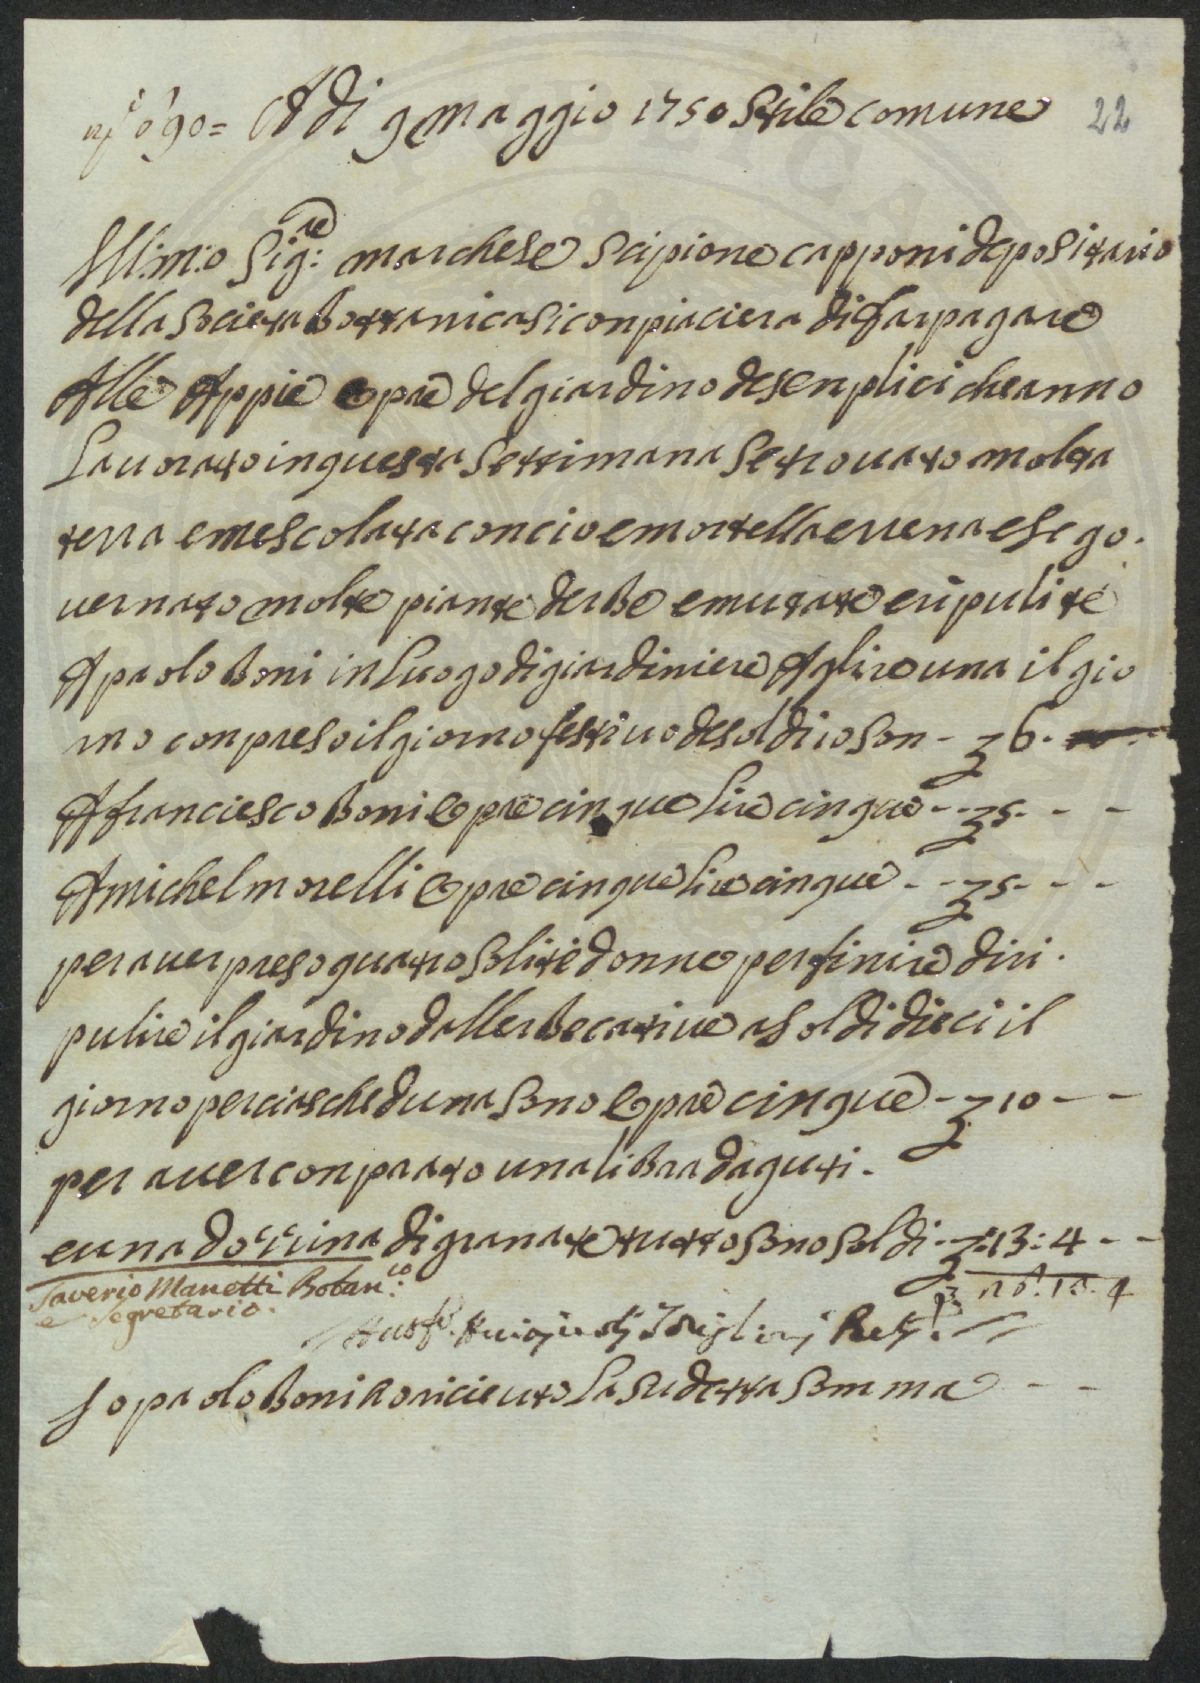 Adi 9 maggio 1750 Stile comune 22
Ill:m:o Sig:re marchese Scipione capponi depositario
della Societa Bottanica si conpiaciera di far pagare
Alle Appie Opre del giardino de senplici che anno
Lauorato in questa Settimana Se trouato molta
terra e mescolata concio e mortella e rena e Se go
uernato molte piante derbe e mutate e ripulite
A paolo Boni in Luogo di giardiniere A lire una il gio
rno conpreso il giorno festiuo de soldi 10 son - 6 -
A franciesco Boni Opre cinque Lire cinque - - 5 - - -
A michel morelli Opre cinque Lire cinque - - 5 - - -
per auer preso quatro Solite donne per finire di ri
pulire il giardino dallerbe catiue a Soldi dieci il
giorno per ciascheduna Sono Opre cinque - 10 - -
per auer conprato una libra daguti -
e una dozzina di granate tutto sono Soldi - - :13: 4 - -
Saverio Manetti Botan:co
e Segretario.
Io paolo Boni o riceuto La Sudetta Somma - -